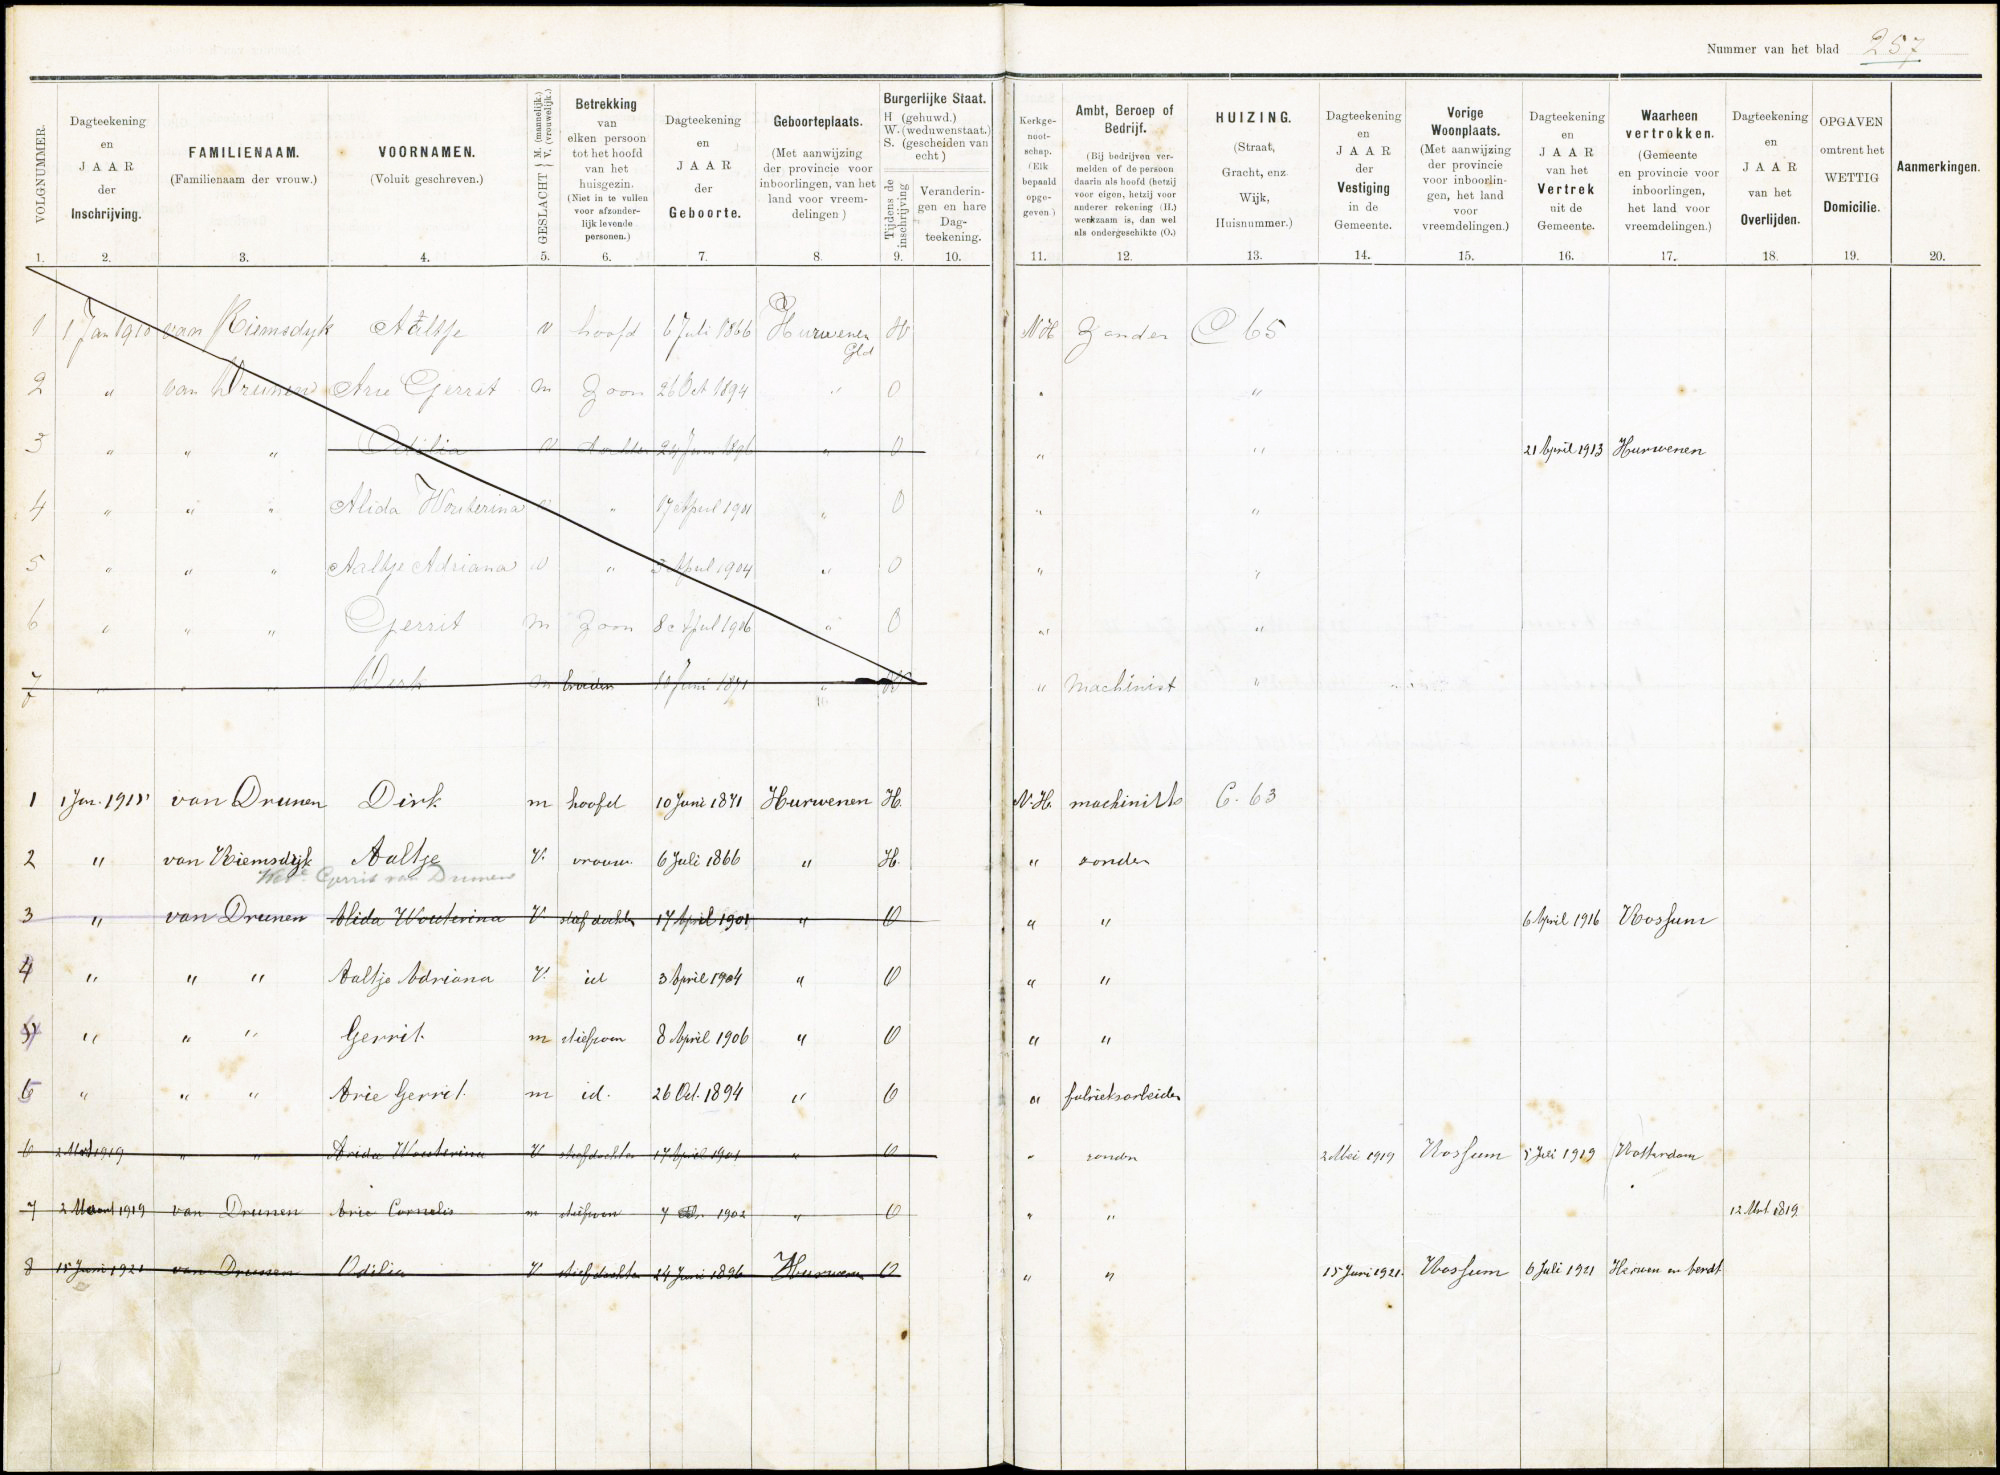 Nummer van het blad 257
VOLGNUMMER. 1.
Dagteekening en JAAR der Inschrijving. 2.
FAMILIENAAM. (Familienaam der vrouw.) 3.
VOORNAMEN. (Voluit geschreven.) 4.
GESLACHT M. (mannelijk.) V. (vrouwelijk.) 5.
Betrekking van elken persoon tot het hoofd van het huisgezin. (Niet in te vullen voor afzonderlijk levende personen.) 6.
Dagteekening en JAAR der Geboorte. 7.
Geboorteplaats. (Met aanwijzing der provincie voor inboorlingen, van het land voor vreemdelingen) 8.
Burgerlijke Staat. H (gehuwd.) W. (weduwenstaat.) S. (gescheiden van echt)
Tijdens de inschrijving 9.
Veranderingen en hare Dagteekening. 10.
Kerkgenootschap. (Elk bepaald opgegeven) 11.
Ambt, Beroep of Bedrijf. (Bij bedrijven vermelden of de persoon daarin als hoofd (hetzij voor eigen, hetzij voor anderer rekening (H.) werkzaam is, dan wel als ondergeschikte (O.) 12.
HUIZING. (Straat, Gracht, enz. Wijk, Huisnummer.) 13.
Dagteekening en JAAR der Vestiging in de Gemeente. 14.
Vorige Woonplaats. (Met aanwijzing der provincie voor inboorlingen, het land voor vreemdelingen.) 15.
Dagteekening en JAAR van het Vertrek uit de Gemeente. 16.
Waarheen vertrokken. (Gemeente en provincie voor inboorlingen, het land voor vreemdelingen.) 17.
Dagteekening en JAAR van het Overlijden. 18.
OPGAVEN omtrent het WETTIG Domicilie. 19.
Aanmerkingen. 20.
1 1 Jan 1910 van Riemsdijk Aaltje V hoofd 6 Juli 1866 Hurwenen Gld W NH Zonder C 65
2 " van Drunen Arie Gerrit m Zoon 26 Oct 1894 " O " "
3 " " " Odilia V dochter 24 Juni 1896 " O " " 21 April 1913 Hurwenen
4 " " " Alida Wouterina V " 17 April 1901 " O " "
5 " " " Aaltje Adriana V " 3 April 1904 " O " "
6 " " " Gerrit m Zoon 8 April 1906 " O " "
7 " " " Dirk m broeder 10 Juni 1871 " " Machinist "
1 1 Jan. 1915 van Drunen Dirk m hoofd 10 Juni 1871 Hurwenen H. N.H. machinist C. 63
2 " van Riemsdijk Aaltje V. vrouw. 6 Juli 1866 " H. " zonder
Wede Gerrit van Drunen
3 " van Drunen Alida Wouterina V stiefdochter 17 April 1901 " O " " 6 April 1916 Rossum
4 " " " Aaltje Adriana V. id 3 April 1904 " O " "
" " " Gerrit. m stiefzoon 8 April 1906 " O " "
" " " Arie Gerrit. m id. 26 Oct. 1894 " O " fabrieksarbeider
6 2 Mei 1919 " " Alida Wouterina V stiefdochter 17 April 1901 " O " zonder 2 Mei 1919 Rossum 5 Juli 1919 Rotterdam
7 2 Maart 1919 van Drunen Arie Cornelis m stiefzoon 1902 " O " " 12 Mrt 1819
8 15 Juni 1921 van Drunen Odilia V stiefdochter 24 Juni 1896 Hurwenen O " " 15 Juni 1921. Rossum 6 Juli 1921 Herwen en Aerdt